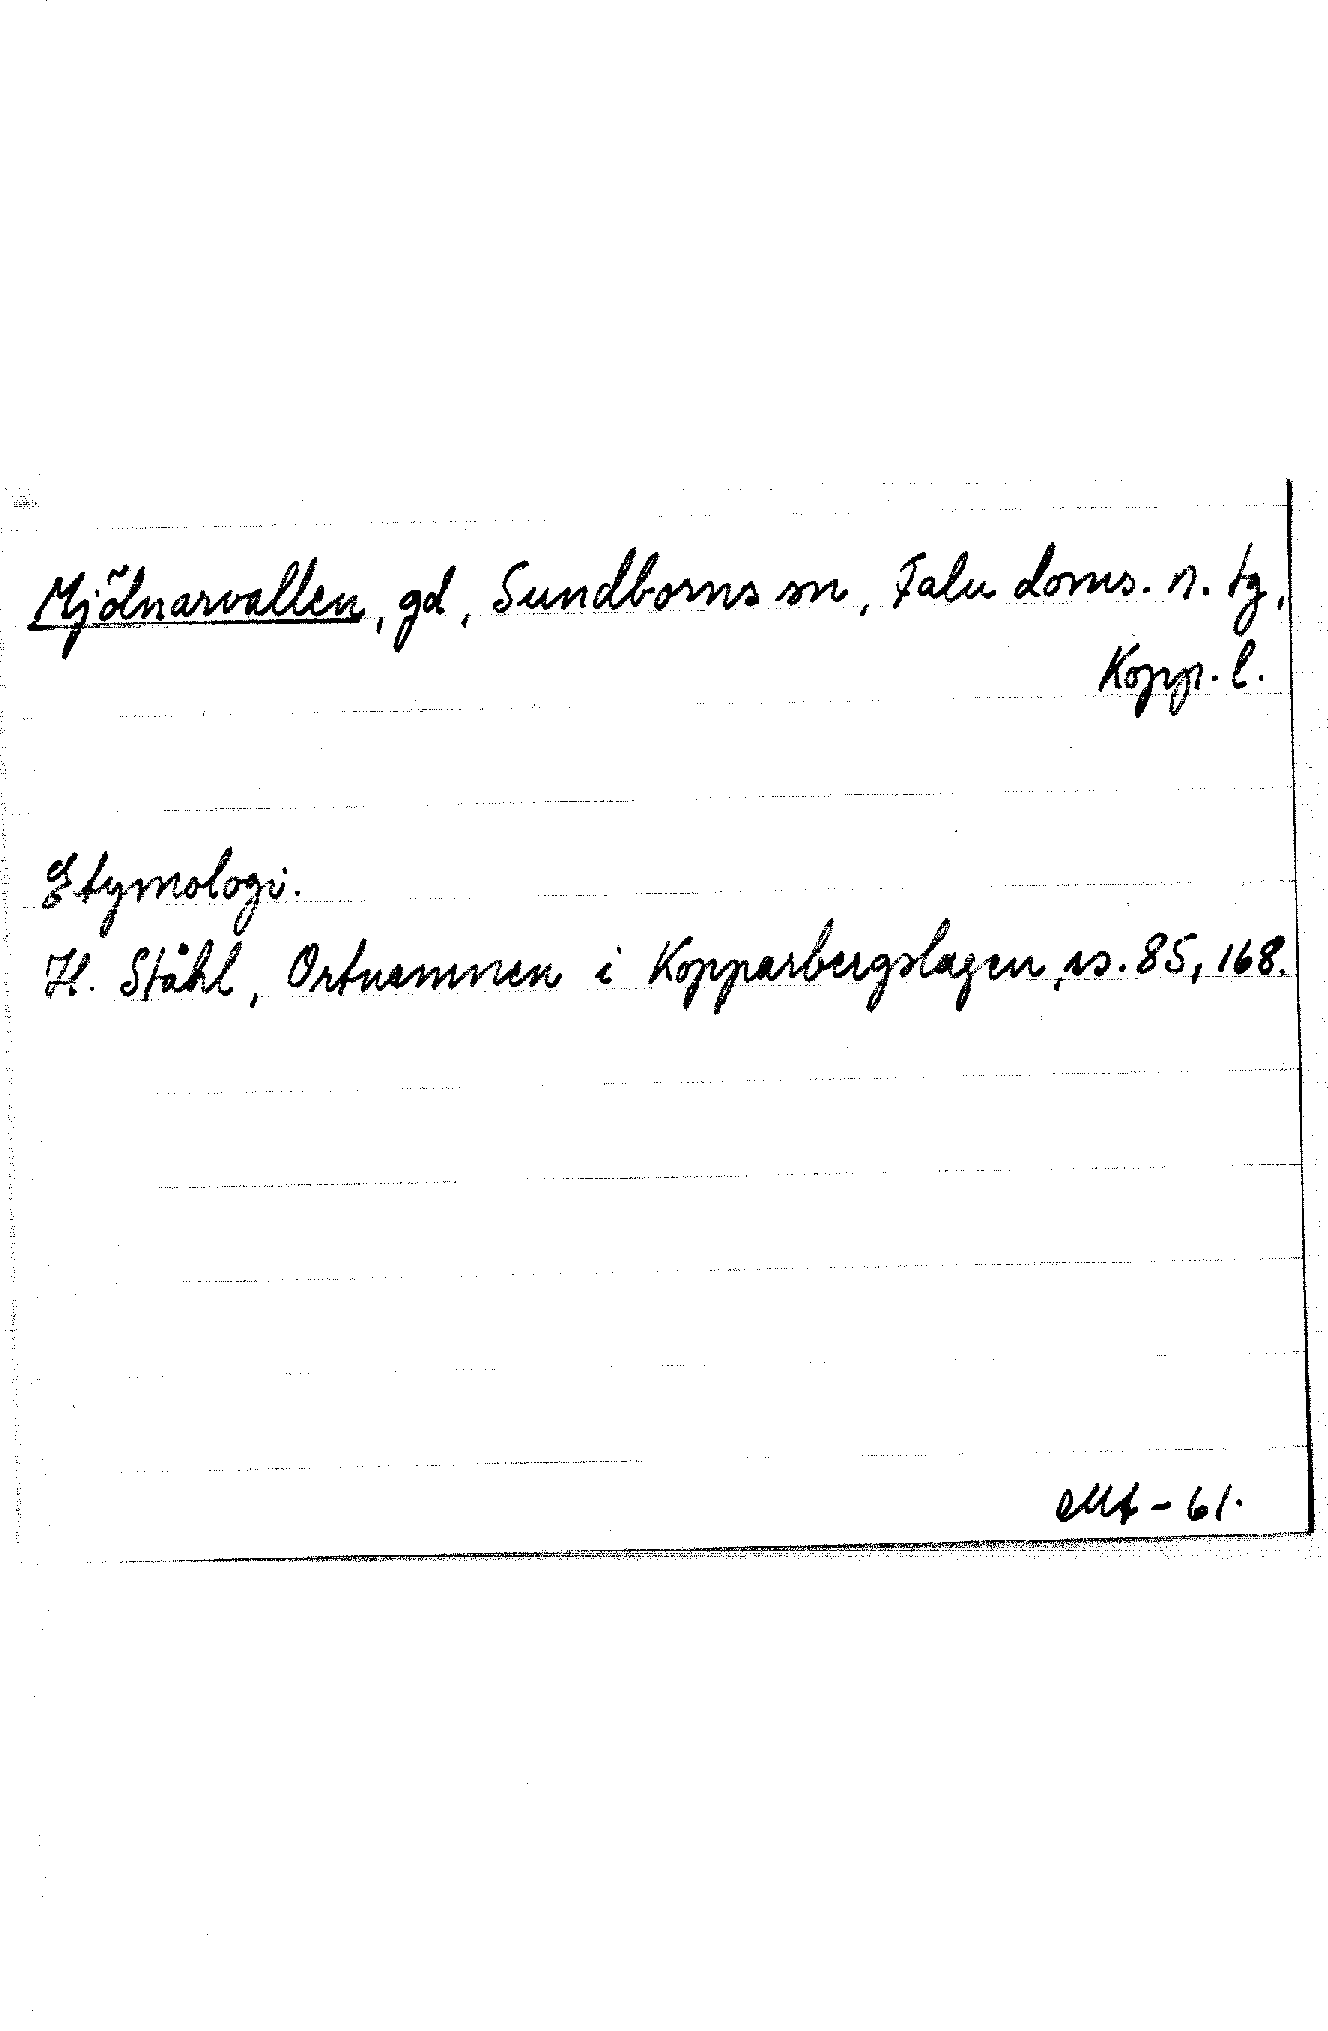 Mjölnarvallen, gd, Sundborns sn, Falu doms. n. tg,
Kopp. l.
Etymologi.
H. Ståhl, Ortnamnen i Kopparbergslagen, ss. 85, 168.
EMt – 61.